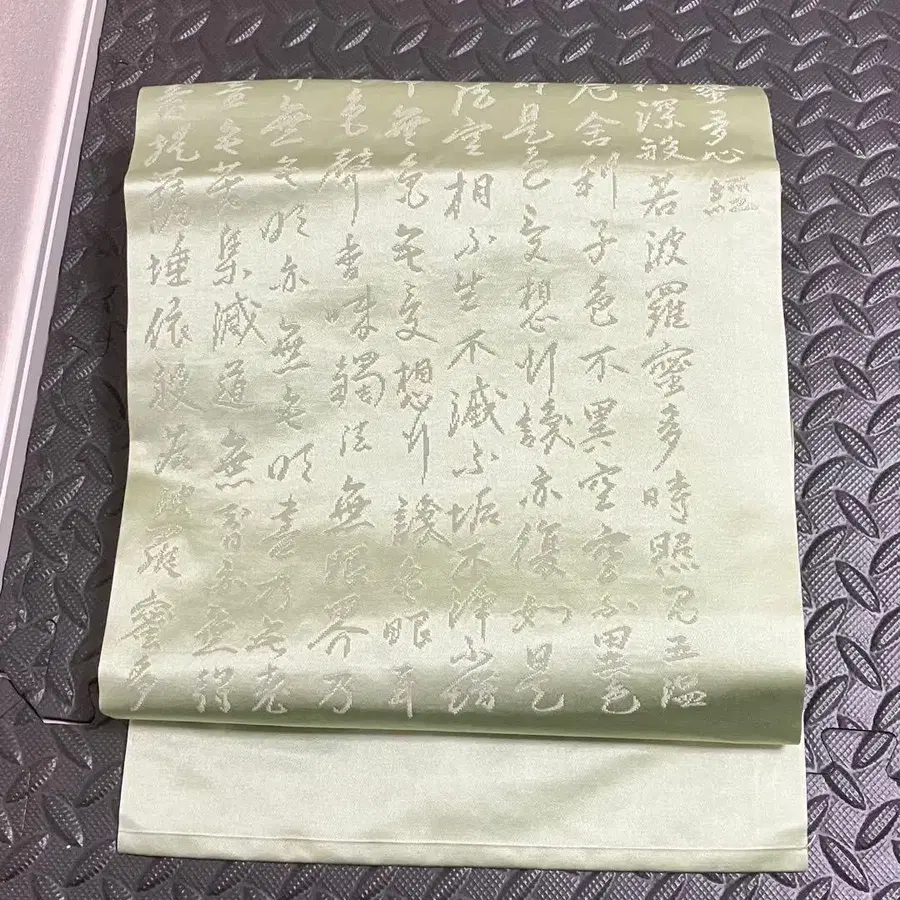 蜜多心經
行深般若波羅蜜多時照見五温
厄舍利子色不異空空不異色
即是色受想行識亦復如是
法空相不生不滅不垢不淨不增
中無色无受想行識無眼耳
色聲香味觸法無眼界乃
無无明亦無无明盡乃至老
盡无苦集滅道無智亦無得
菩提薩埵依般若波羅蜜多